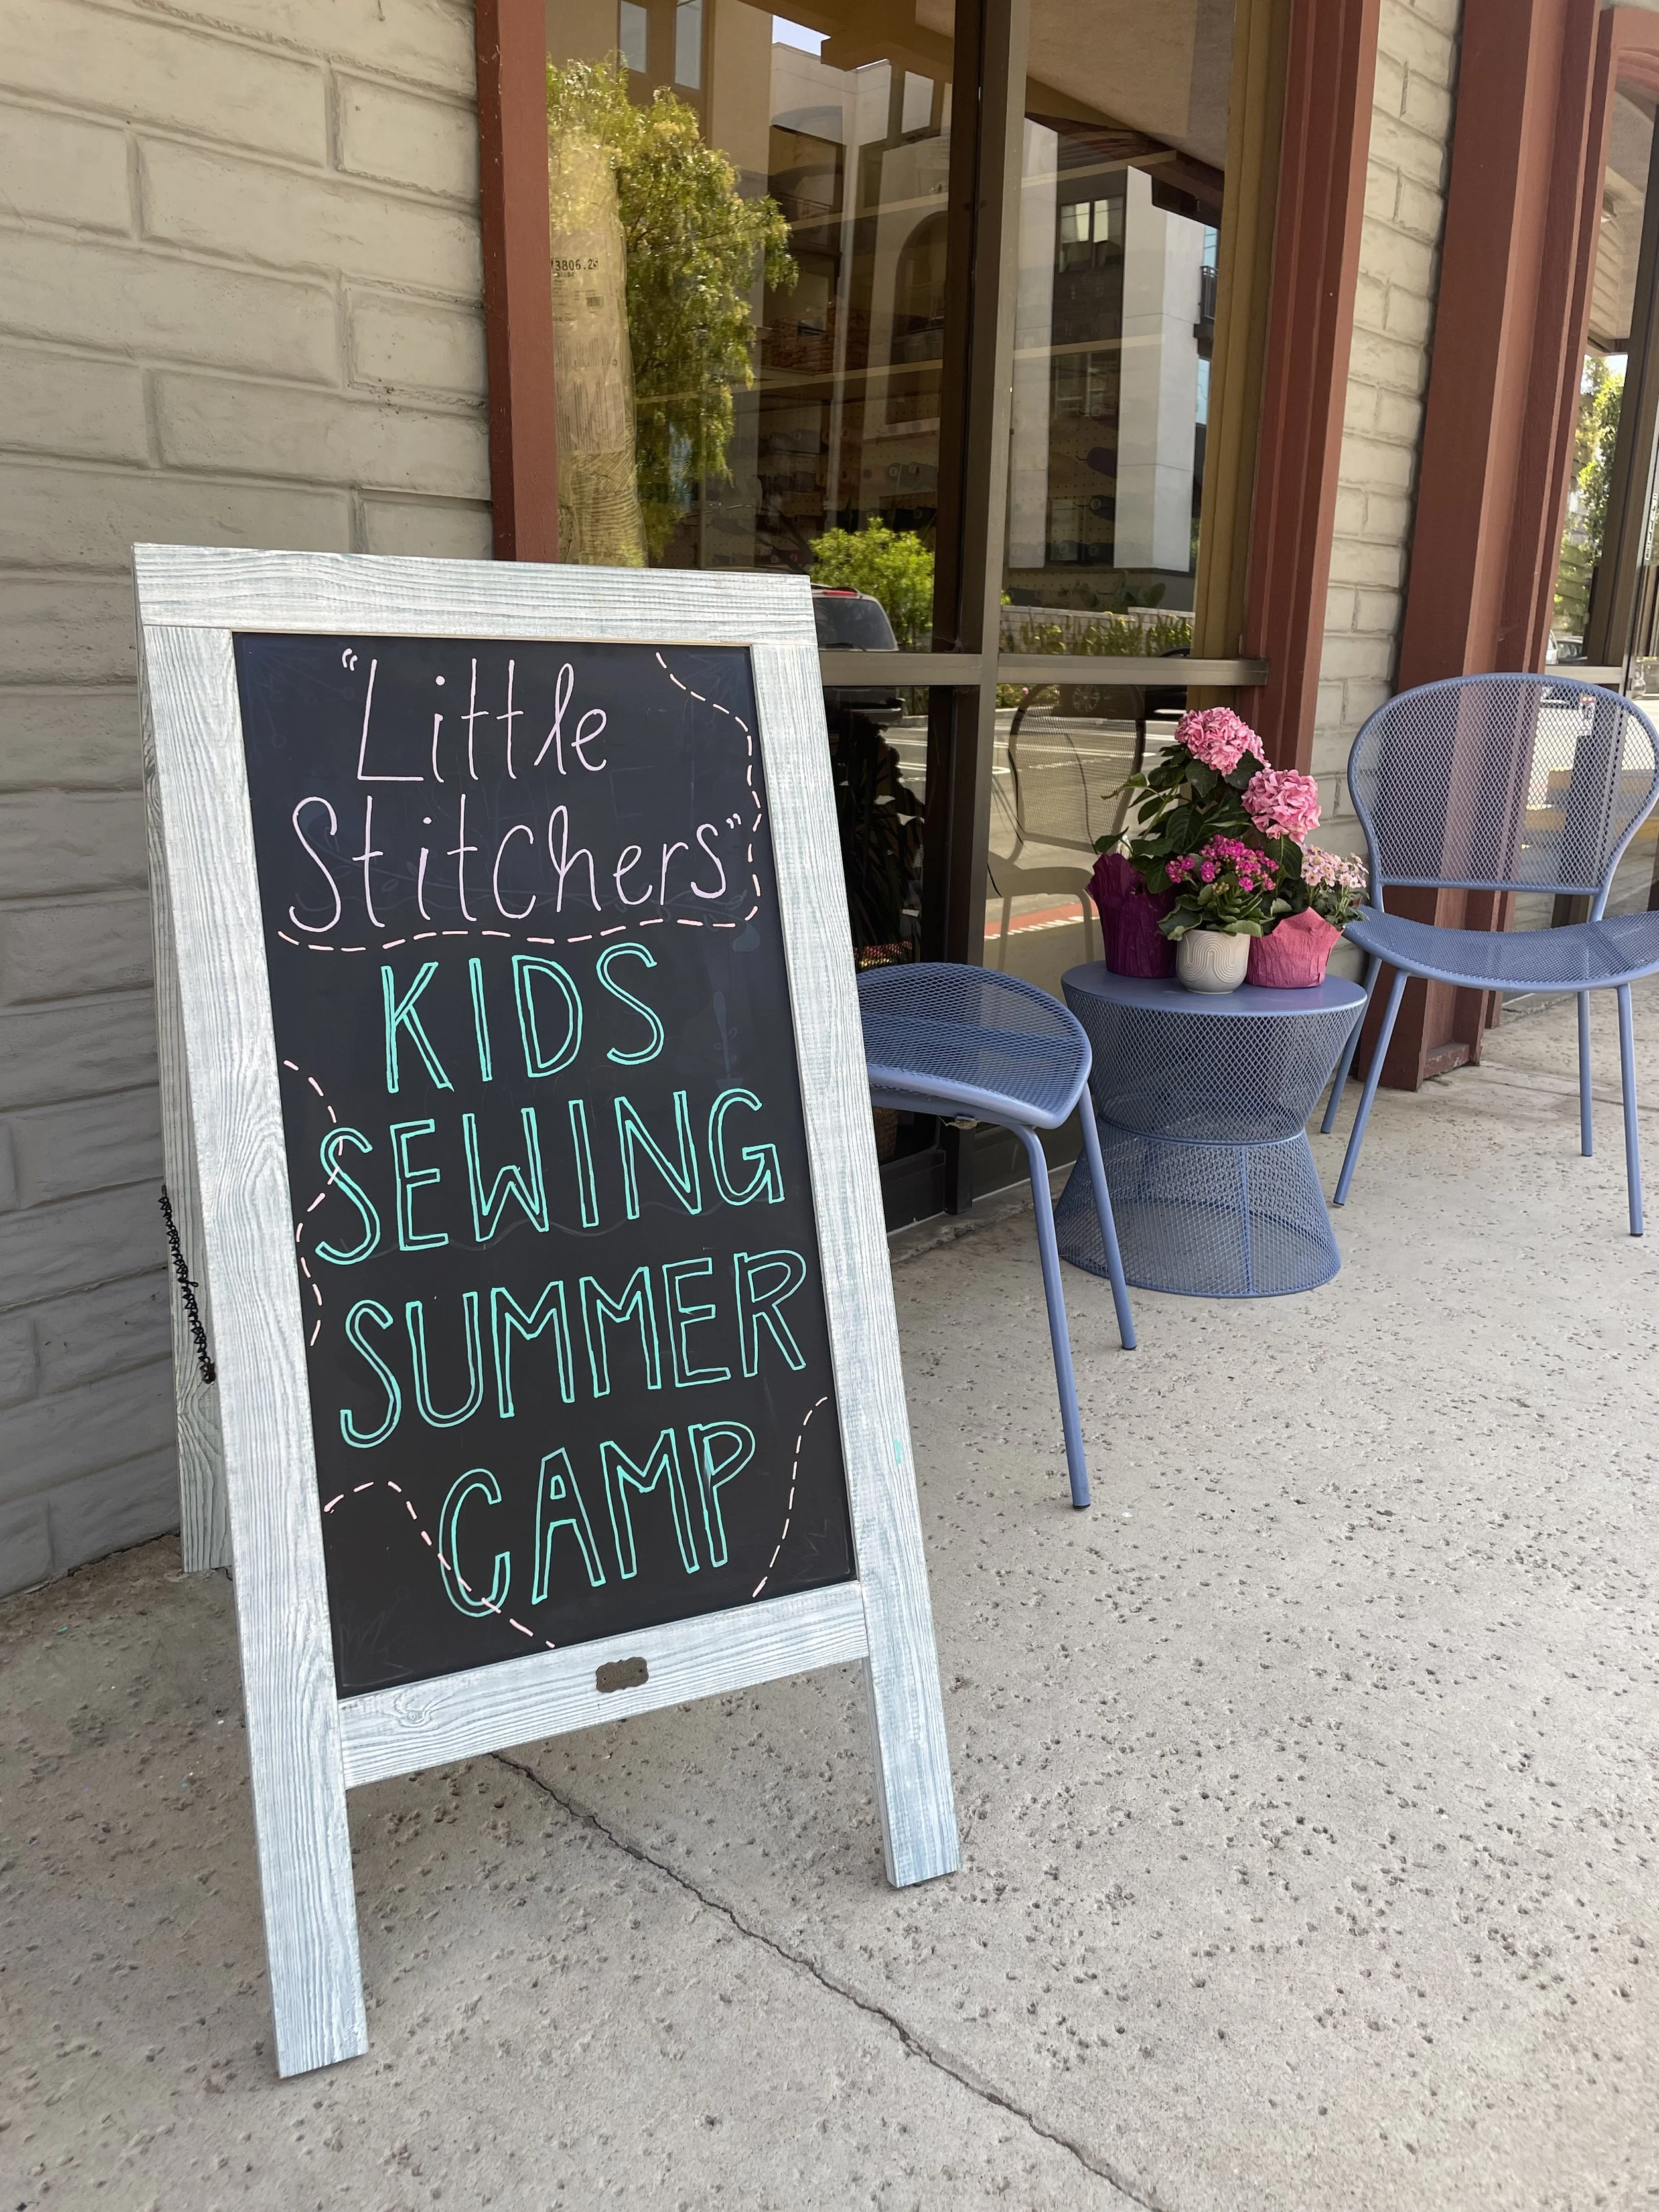 "Little
Stitchers"
KIDS
SEWING
SUMMER
CAMP